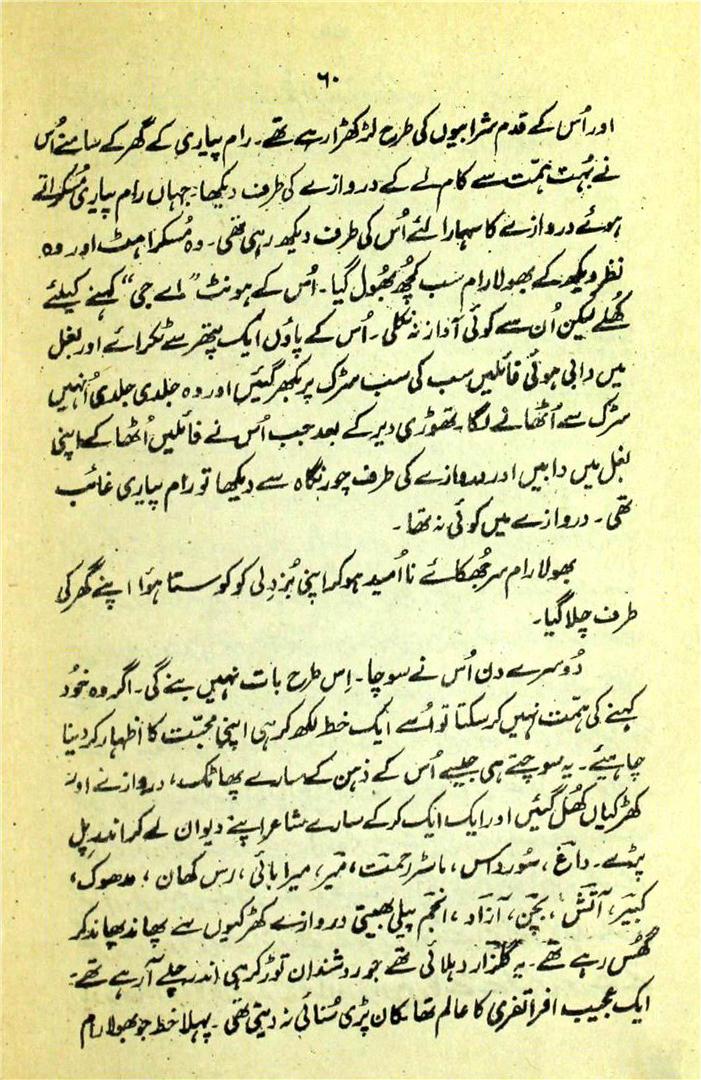 ۶۰
اور اُس کے قدم شرابیوں کی طرح لڑکھڑا رہے تھے۔ رام پیاری کے گھر کے سامنے اُس
نے بُہت ہمّت سے کام لے کے دروازے کی طرف دیکھا۔ جہاں رام پیاری مُسکراتے
ہوئے دروازے کا سہارا لئے اُس کی طرف دیکھ رہی تھی۔ وہ مُسکراہٹ اور وہ
نظر دیکھ کے بھولا رام سب کچھ بھُول گیا۔ اُس کے ہونٹ ”اے جی“ کہنے کیلئے
کھُلے لیکن اُن سے کوئی آواز نہ نکلی۔ اُس کے پاؤں ایک پتھر سے ٹکرائے اور بغل
میں دابی ہوئی فائلیں سب کی سب سڑک پر بکھر گئیں اور وہ جلدی جلدی اُنہیں
سڑک سے اُٹھانے لگا۔ تھوڑی دیر کے بعد جب اُس نے فائلیں اُٹھا کے اپنی
بغل میں دابیں اور دروازے کی طرف چور نگاہ سے دیکھا تو رام پیاری غائب
تھی۔ دروازے میں کوئی نہ تھا۔
بھولا رام سر جھُکائے نا اُمید ہو کر اپنی بُزدلی کو کوستا ہوُا اپنے گھر کی
طرف چلا گیا۔
دُوسرے دن اُس نے سوچا۔ اِس طرح بات نہیں بنے گی۔ اگر وہ خُود
کہنے کی ہمّت نہیں کر سکتا تو اُسے ایک خط لکھ کر ہی اپنی محبّت کا اظہار کر دینا
چاہیئے۔ یہ سوچتے ہی جیسے اُس کے ذہن کے سارے پھاٹک، دروازے اور
کھڑکیاں کھُل گئیں اور ایک ایک کر کے سارے شاعر اپنے دیوان لے کر اندر پل
پڑے۔ داغؔ، سُورداس، ماسٹر رحمت، میرؔ، میرا بائی، رس کھان، مدھوک،
کبیرؔ، آتشؔ، بچّن، آزادؔ، انجمؔ پیلی بھیتی دروازے کھڑکیوں سے پھاند پھاند کر
گھُس رہے تھے۔ یہ گلزارؔ دہلائی تھے جو روشندان توڑ کر ہی اندر چلے آ رہے تھے۔
ایک عجیب افراتفری کا عالم تھا۔ کان پڑی سُنائی نہ دیتی تھی۔ پہلا خط جو بھولا رام